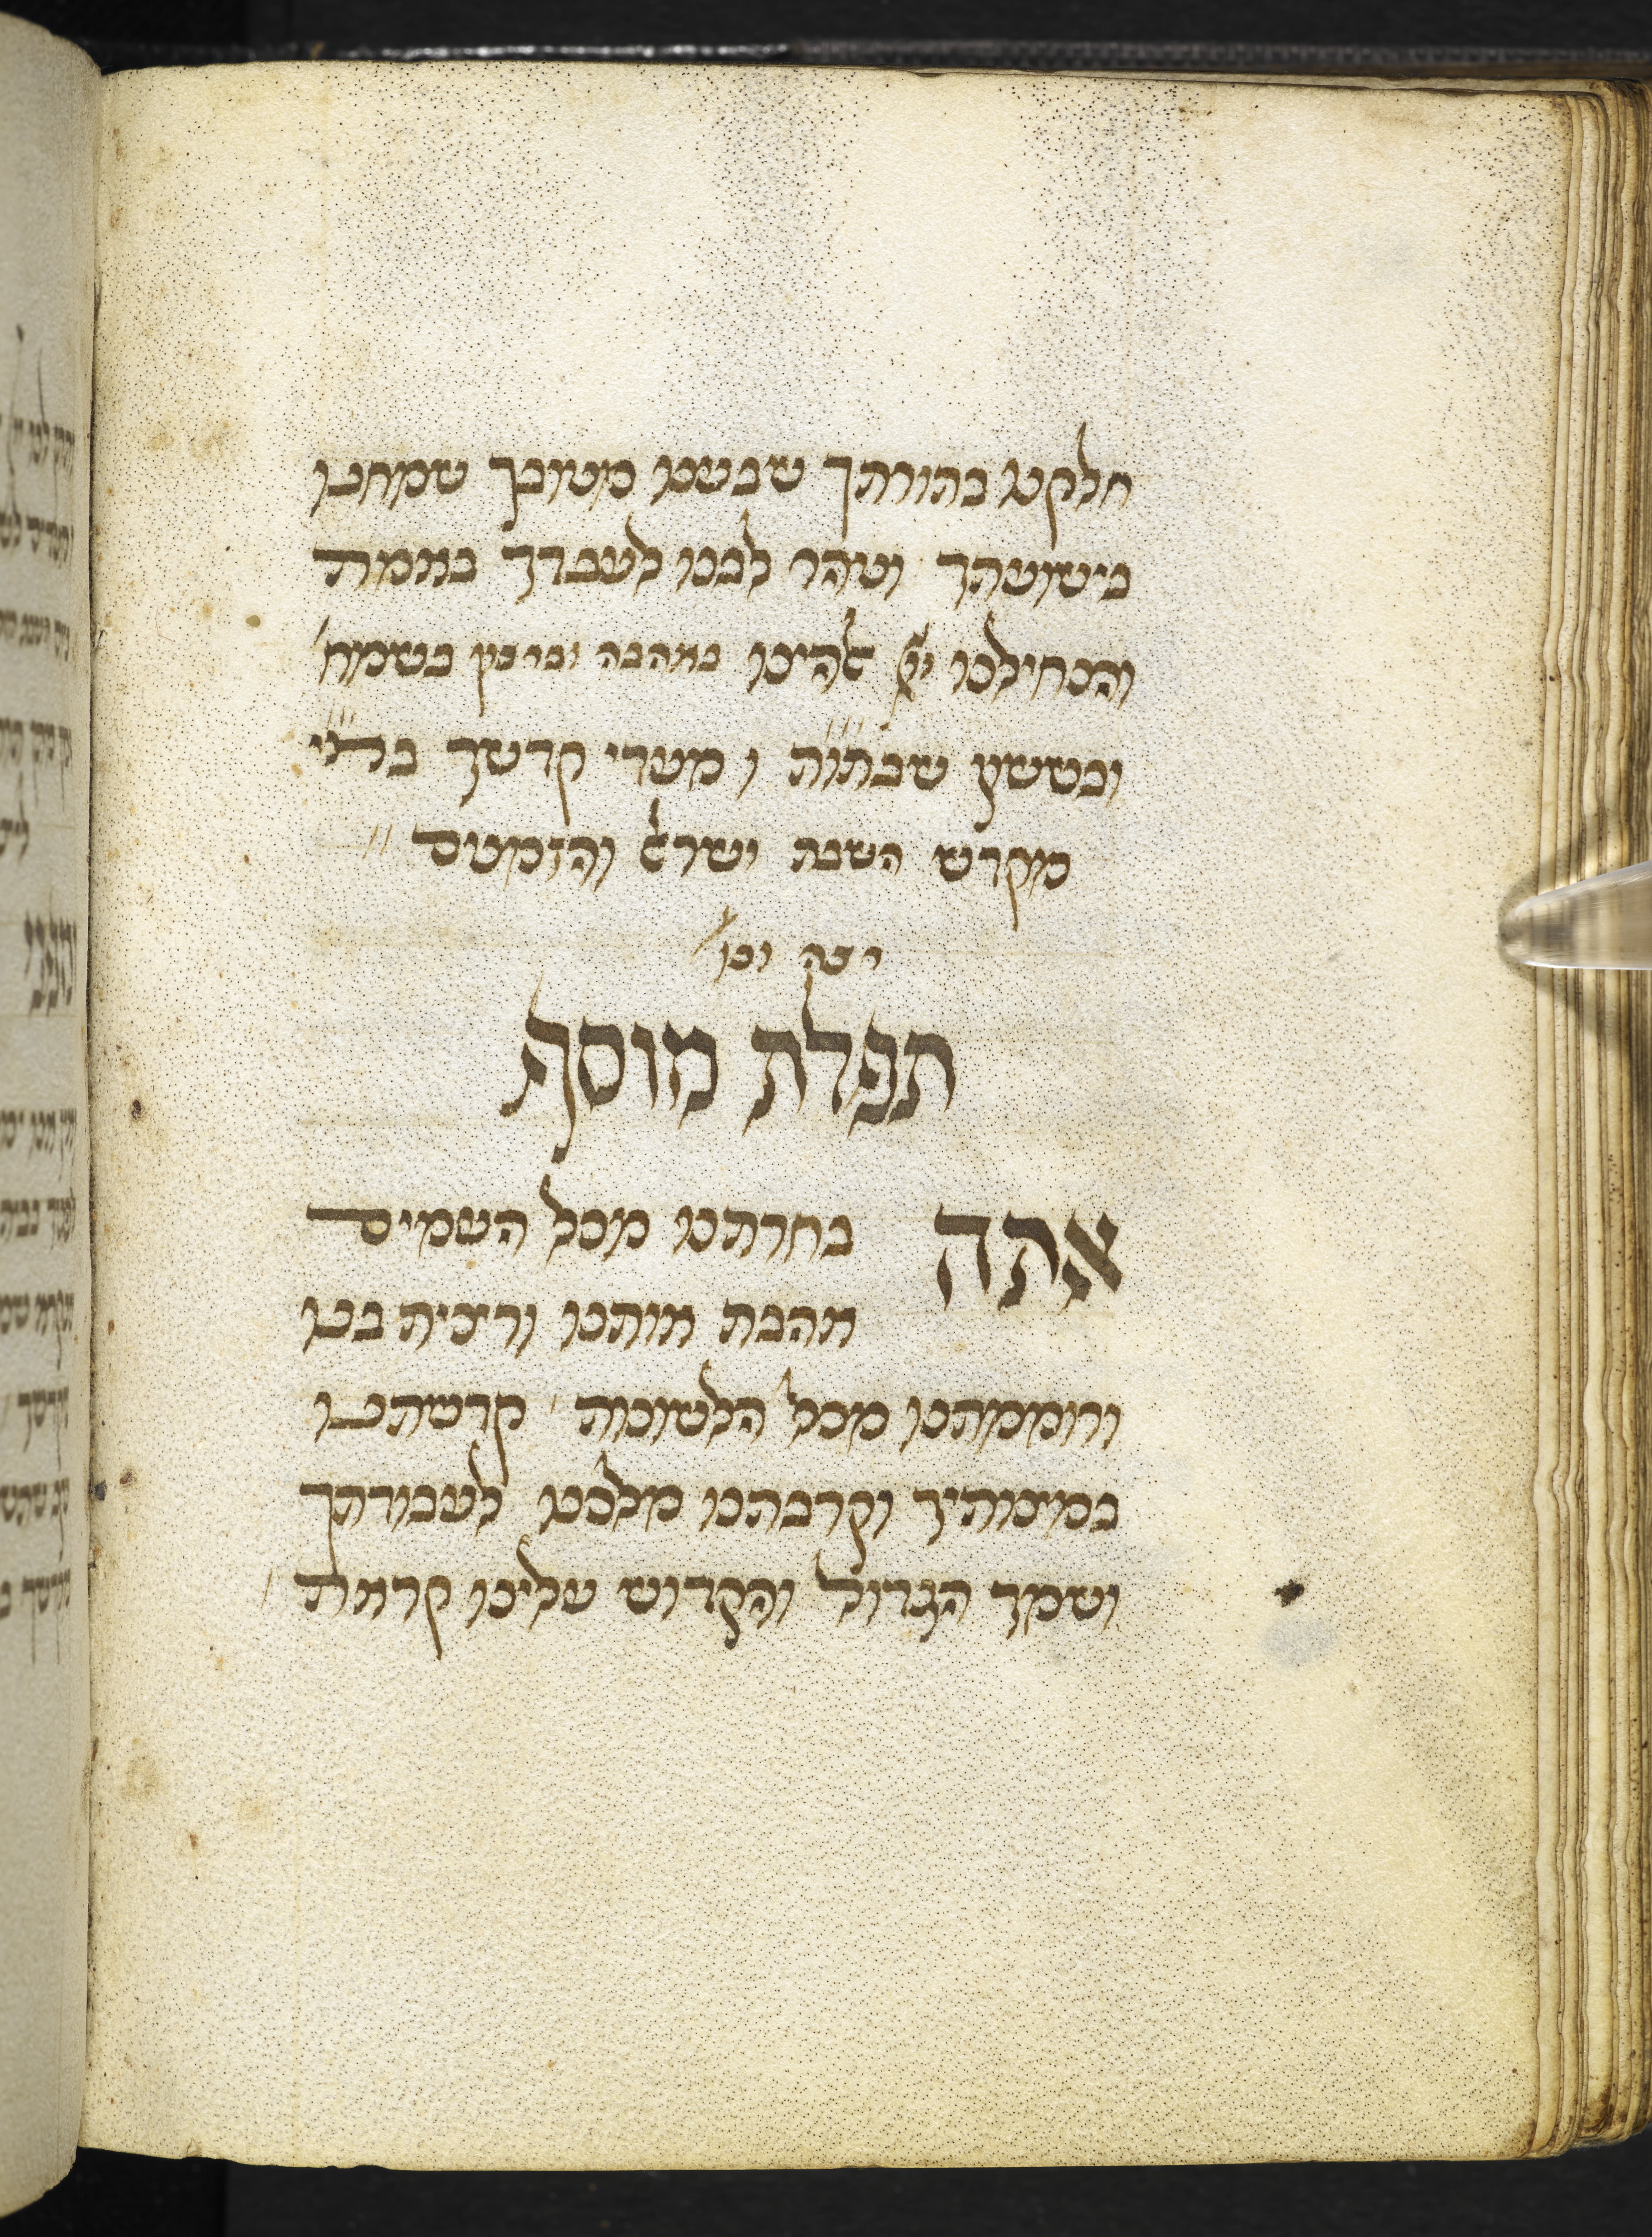 חלקנו בתורתך שבענו מטובך שמחנו
בישועתך וטהר לבנו לעבדך באמת
והנחילנו יי אלהינו באהבה וברצון בשמח׳
ובששון שבתות ו מועדי קדשך ב״א״י
מקדש השבת ישראל והזמנים
רצה וכו׳
תפלת מוסף
אתה בחרתנו מכל העמים
אהבת אותנו ורצית בנו
ורוממתנו מכל הלשונות קדשתנו
במצותיך וקרבתנו מלכנו לעבודתך
ושמך הגדול והקדוש עלינו קראת